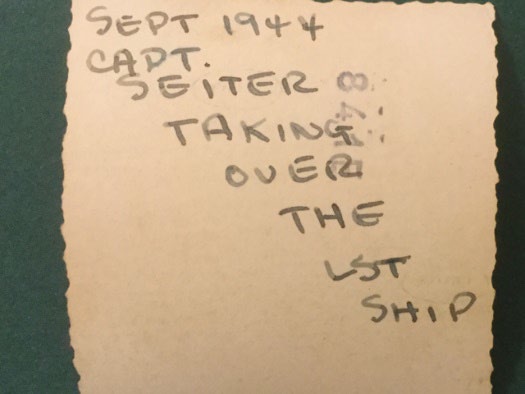 SEPT 1944
CAPT.
SEITER
TAKING
OVER
THE
LST
SHIP